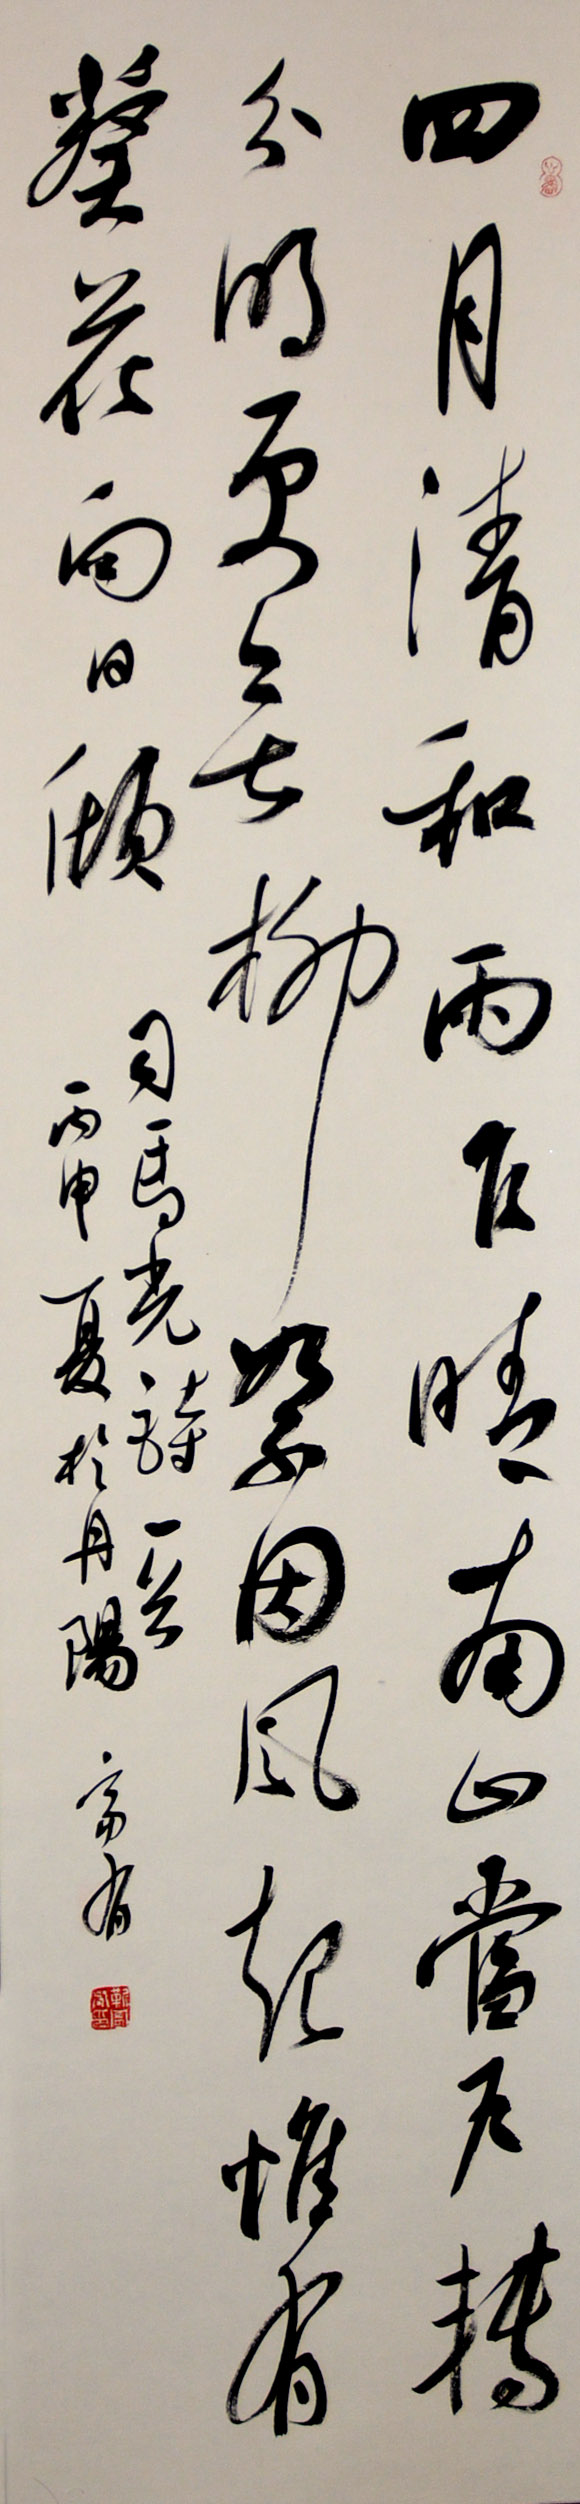 四月清和雨乍晴南山當户轉
分明更無柳絮因風起惟有
葵花向日傾
司馬光詩一首
丙申夏於丹陽 富有